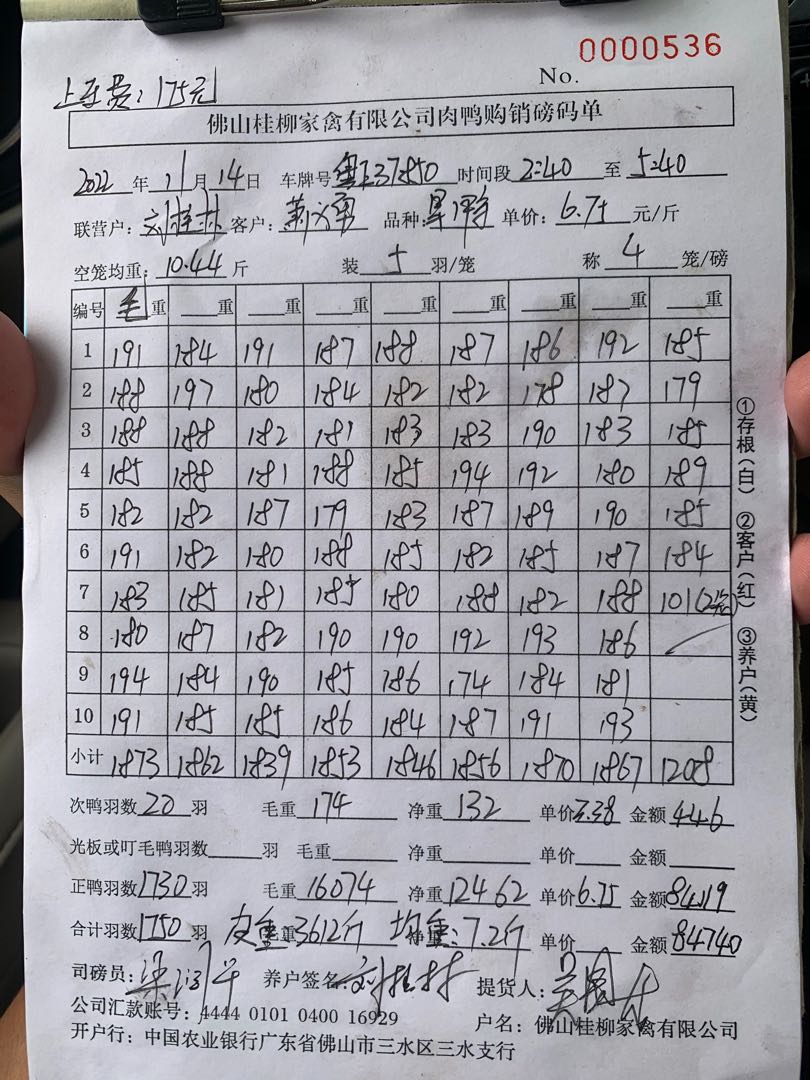 0000536
No.
上车费：175元
佛山桂柳家禽有限公司肉鸭购销磅码单
2022年11月14日 车牌号 37850 时间段 2:40 至 5:40
联营户：刘桂林 客户： 品种： 单价：6.75 元/斤
空笼均重：10.44 斤 装 5 羽/笼 称 4 笼/磅
编号 毛重 重 重 重 重 重 重 重 重
1 191 184 191 187 188 187 186 192 185
2 188 197 180 184 182 182 178 187 179
3 188 188 182 181 183 183 190 183 185
4 185 188 181 188 185 194 192 180 189
5 182 182 187 179 183 187 189 190 185
6 191 182 180 188 185 182 185 187 184
7 183 185 181 185 180 188 182 188 101(2笼)
8 180 187 182 190 190 192 193 186
9 194 184 190 185 186 174 184 181
10 191 185 185 186 184 187 191 193
小计 1873 1862 1839 1853 1846 1856 1870 1867 1208
①存根(白) ②客户(红) ③养户(黄)
次鸭羽数 20 羽 毛重 174 净重 132 单价 3.38 金额 446
光板或叮毛鸭羽数 羽 毛重 净重 单价 金额
正鸭羽数 1730 羽 毛重 16074 净重 12462 单价 6.75 金额 84119
合计羽数 1750 羽 毛重 皮重:3612斤 净重 均重:7.2斤 单价 金额 84740
司磅员： 养户签名：刘桂林 提货人：
公司汇款账号：4444 0101 0400 16929 户名：佛山桂柳家禽有限公司
开户行：中国农业银行广东省佛山市三水区三水支行